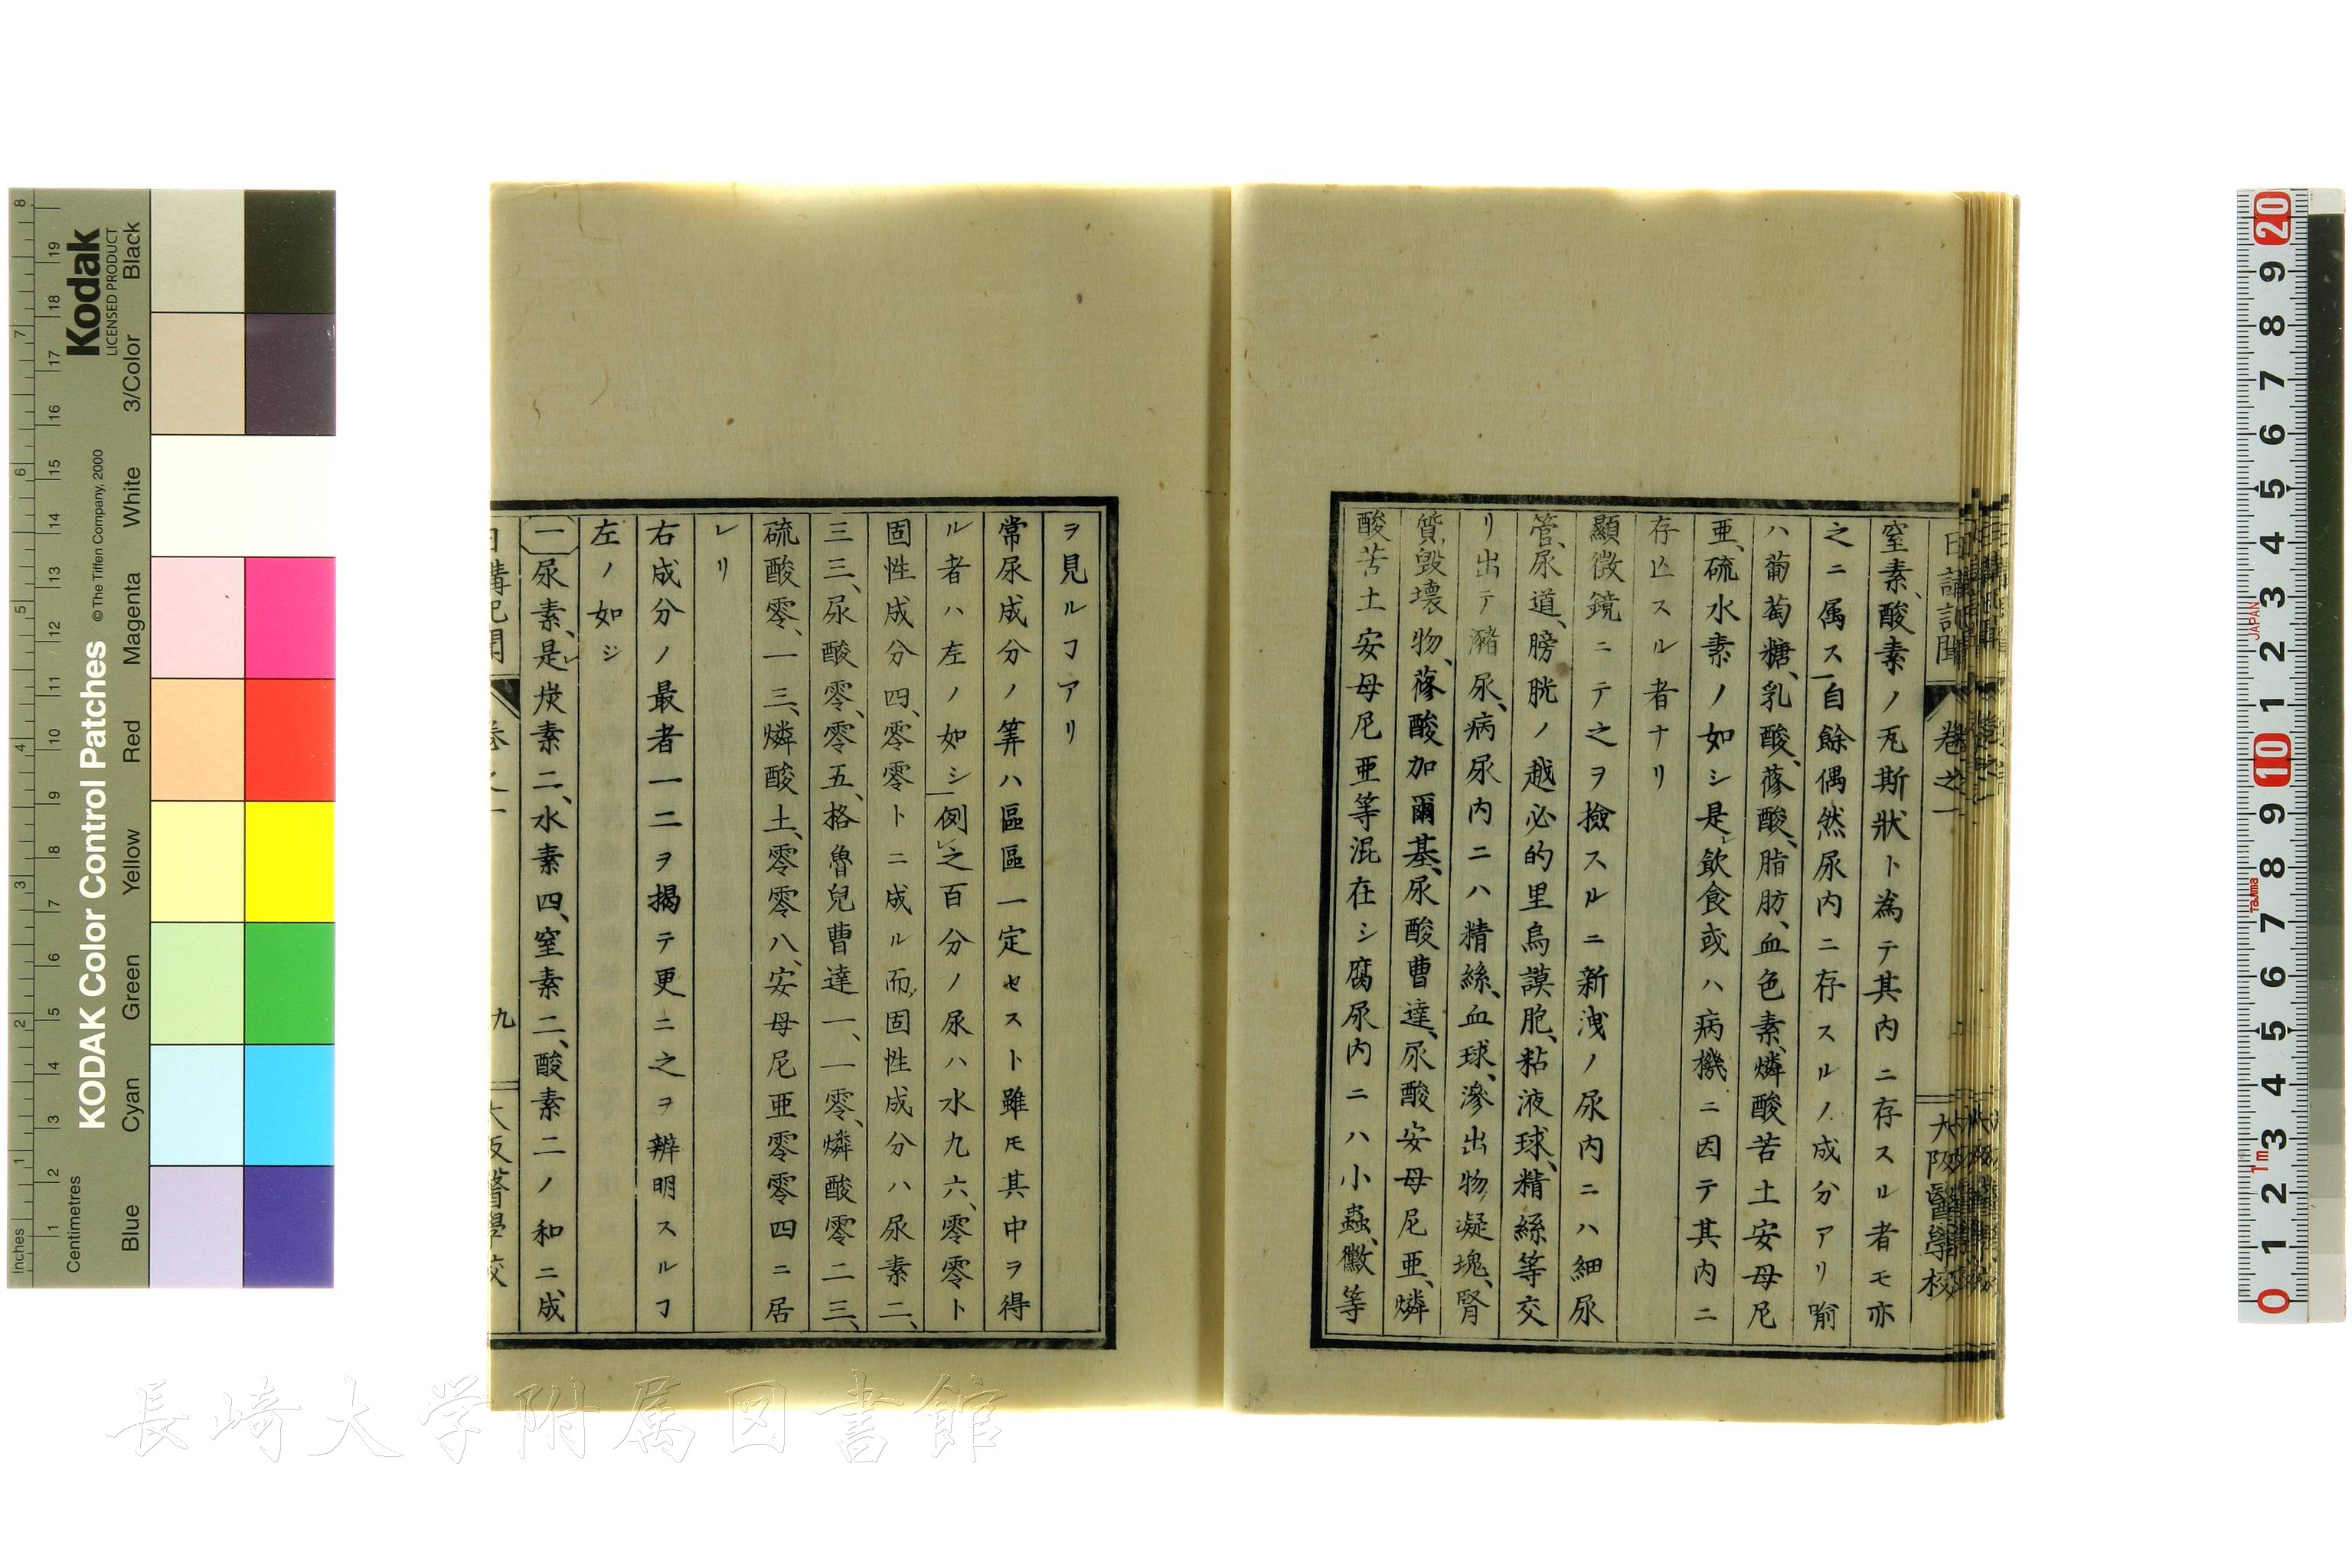 日講記聞 卷之一 大阪醫學校
窒素、酸素ノ瓦斯狀ト為テ其内ニ存スル者モ亦
之ニ属ス自餘偶然尿内ニ存スルノ成分アリ喻
ハ葡萄糖、乳酸、蓚酸、脂肪、血色素、燐酸苦土安母尼
亜、硫水素ノ如シ是レ飲食或ハ病機ニ因テ其内ニ
存亾スル者ナリ
顯微鏡ニテ之ヲ撿スルニ新洩ノ尿内ニハ細尿
管、尿道、膀胱ノ越必的里烏謨胞、粘液球、精絲等交
リ出テ瀦尿、病尿内ニハ精絲、血球、滲出物、凝塊、腎
質、毀壞物、蓚酸加爾基、尿酸曹達、尿酸安母尼亜、燐
酸苦土安母尼亜等混在シ腐尿内ニハ小蟲、黴等
ヲ見ルヿアリ
常尿成分ノ筭ハ區區一定セスト雖モ其中ヲ得
ル者ハ左ノ如シ例之百分ノ尿ハ水九六、零零ト
固性成分四、零零トニ成ル而固性成分ハ尿素二、
三三、尿酸零、零五、格魯兒曹達一、一零、燐酸零二三、
硫酸零、一三、燐酸土、零零八、安母尼亜零零四ニ居
レリ
右成分ノ最者一二ヲ揭テ更ニ之ヲ辨明スルヿ
左ノ如シ
一尿素、是レ炭素二、水素四、窒素二、酸素二ノ和ニ成
日講記聞 卷之一 九 大阪醫學校
KODAK Color Control Patches
© The Tiffen Company, 2000
Kodak
LICENSED PRODUCT
Inches
1 2 3 4 5 6 7 8
Centimetres
1 2 3 4 5 6 7 8 9 10 11 12 13 14 15 16 17 18 19
Blue Cyan Green Yellow Red Magenta White 3/Color Black
0 1 2 3 4 5 6 7 8 9 10 1 2 3 4 5 6 7 8 9 20
1m
Tajima
JAPAN
長崎大学附属図書館